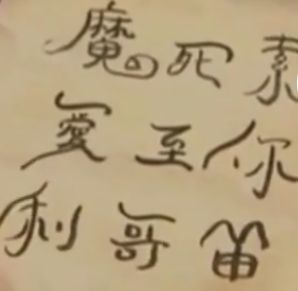 魔死素
愛至你
利哥笛